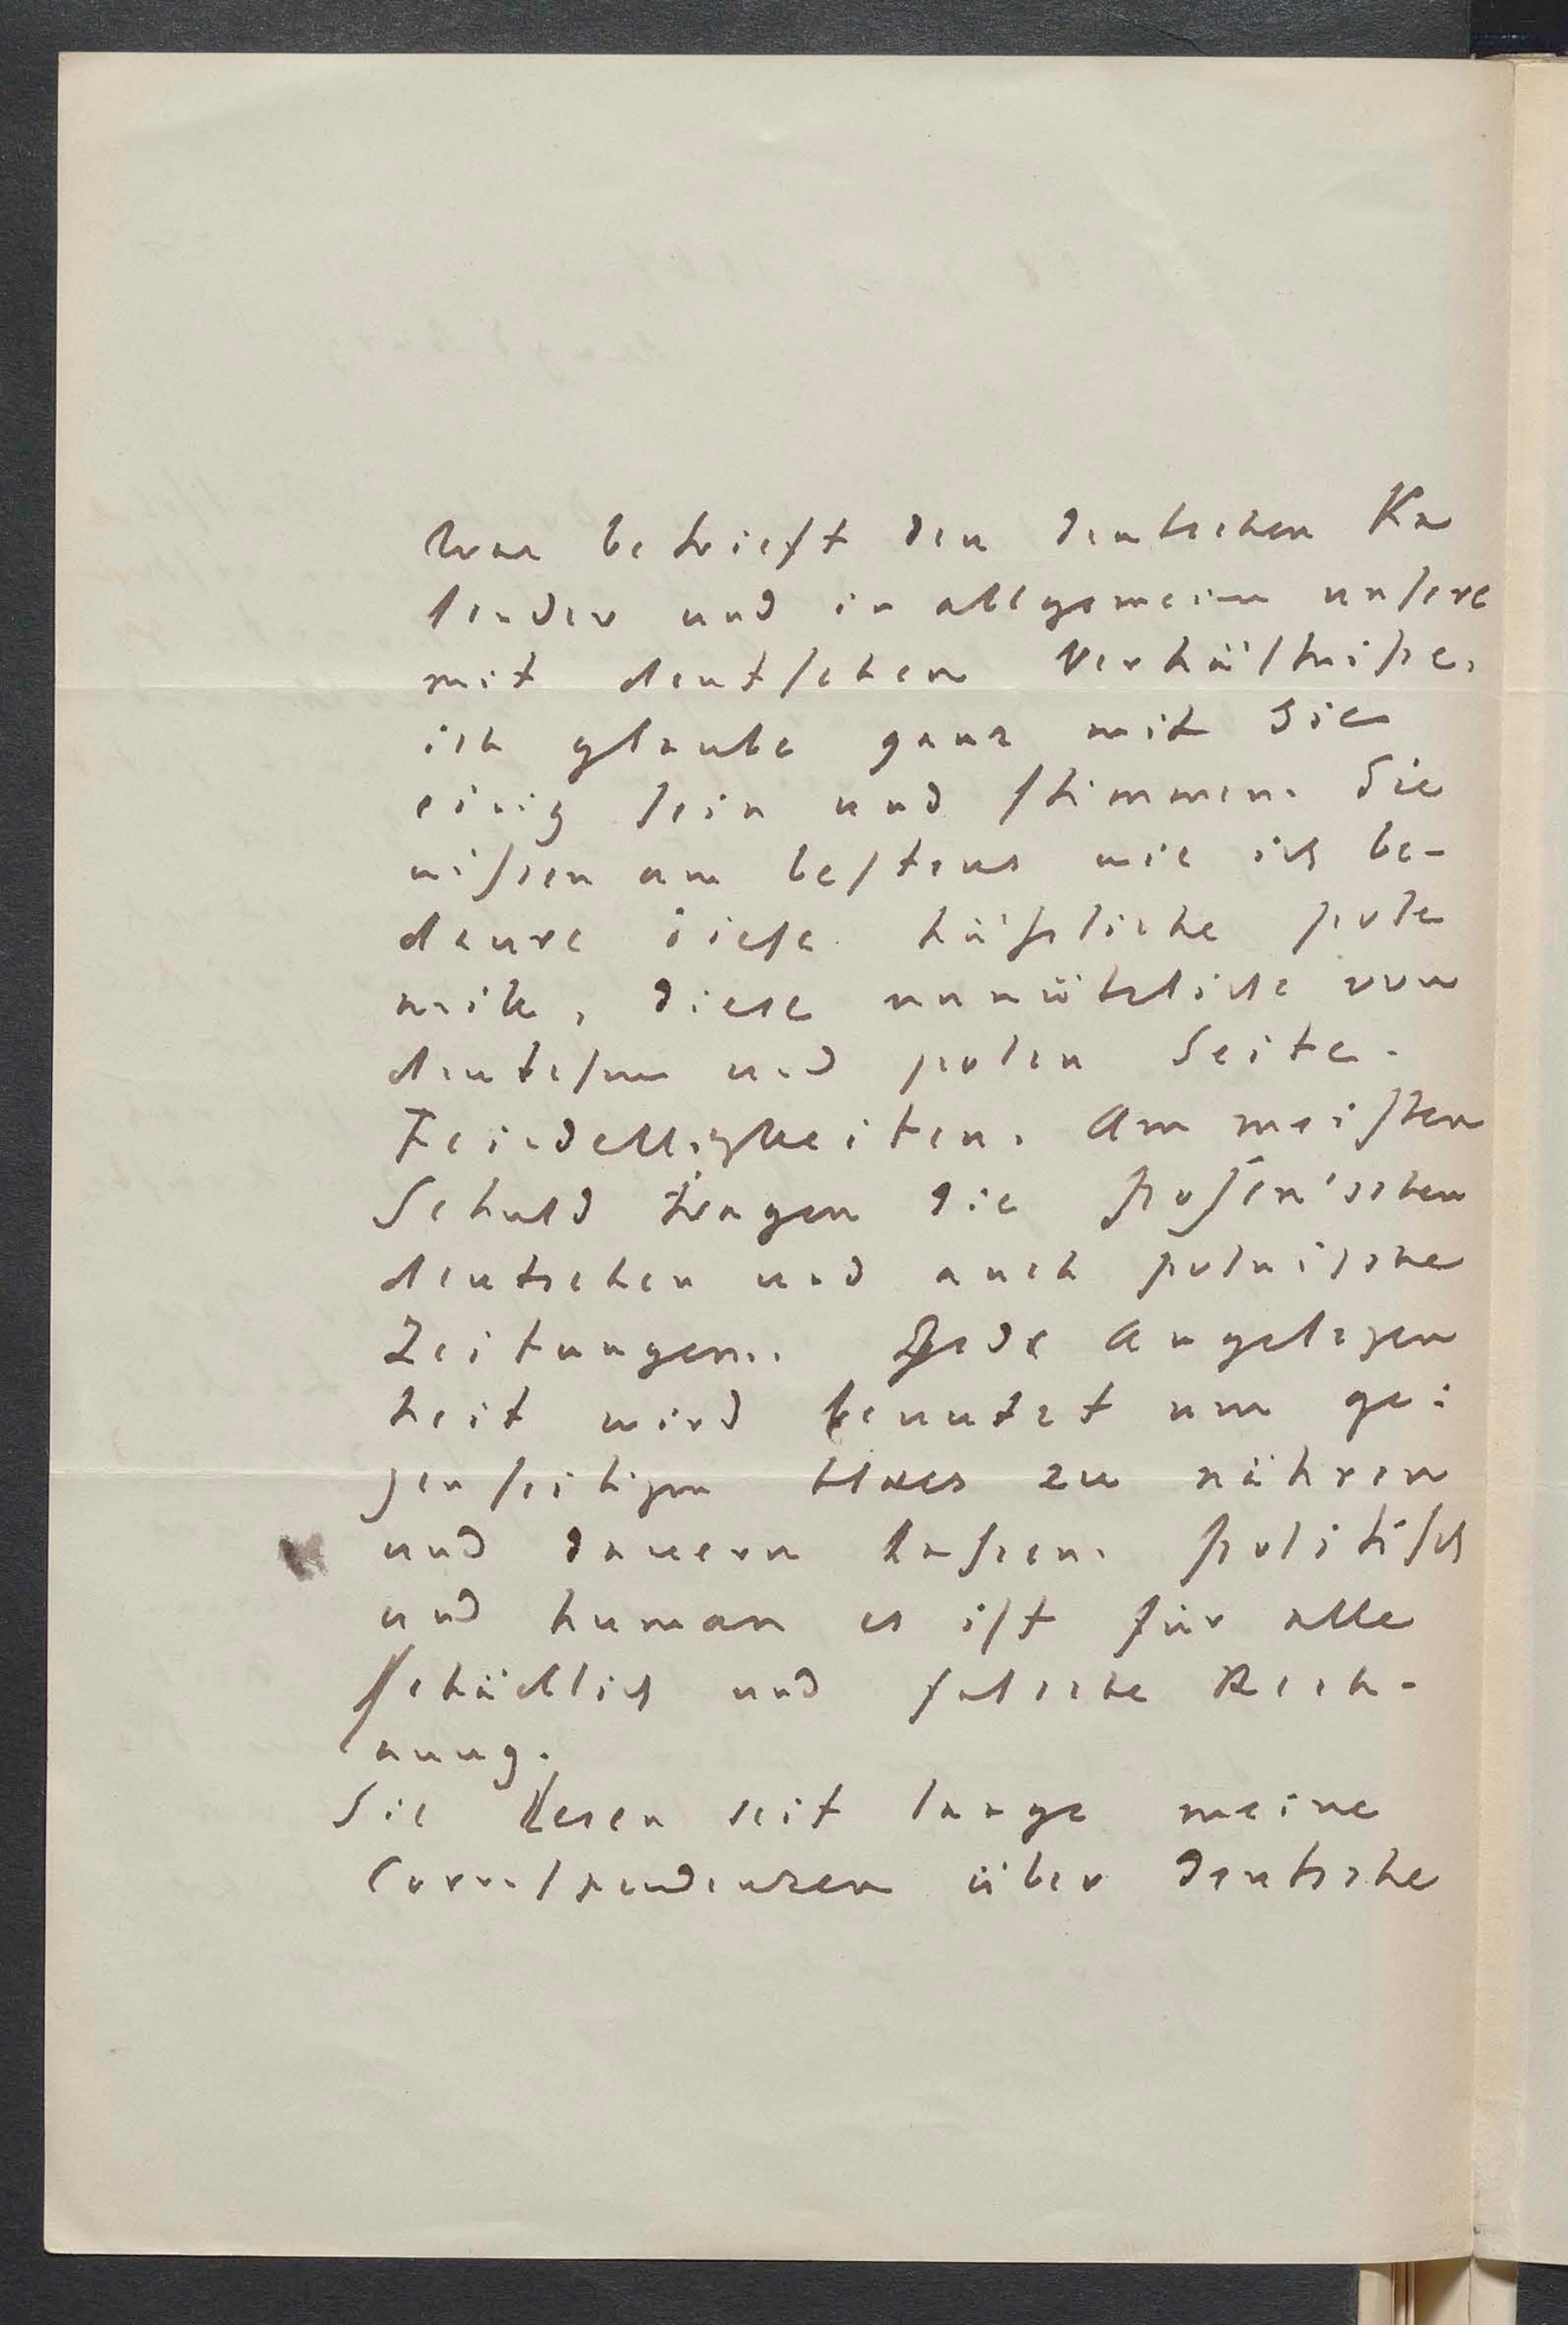 Was betrieft den deutschen Ka
lender und in allgemeinn unsere
mit deutschen Verhältnisse,
ich glaube ganz mit Sie
einig sein und stimmen. Sie
wissen am bestens wie ich be-
daure diese hässliche pole
mik, diese unnützliche von
deutschen und polen Seite.
Feindelligkeiten. Am meisten
Schuld tragen die posen'schen
deutschen und auch polnische
Zeitungen. Jede Angelegen
heit wird benutzt um ge:
genseitigen Hass zu nähren
und dauern lassen. politisch
und human es ist für alle
schädlich und falsche Rech-
nung.
Sie lesen seit lange meine
Correspondenzen über deutsche